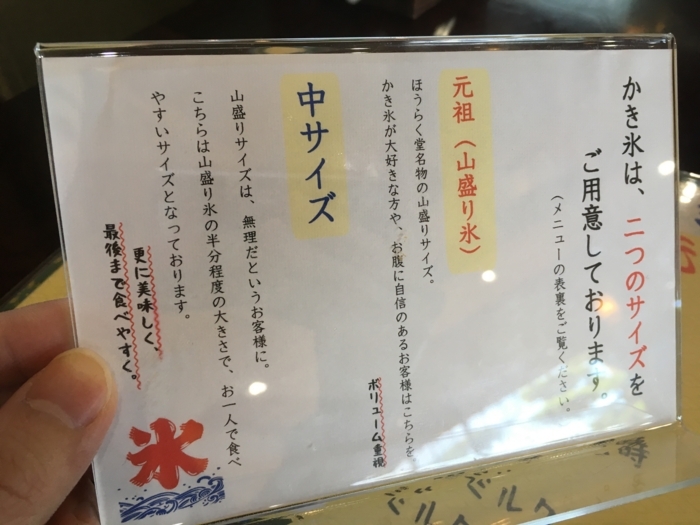 かき氷は、二つのサイズを
ご用意しております。
（メニューの表裏をご覧ください。）
元祖（山盛り氷）
ほうらく堂名物の山盛りサイズ。
かき氷が大好きな方や、お腹に自信のあるお客様はこちらを
ボリューム重視
中サイズ
山盛りサイズは、無理だというお客様に。
こちらは山盛り氷の半分程度の大きさで、お一人で食べ
やすいサイズとなっております。
更に美味しく
最後まで食べやすく。
氷